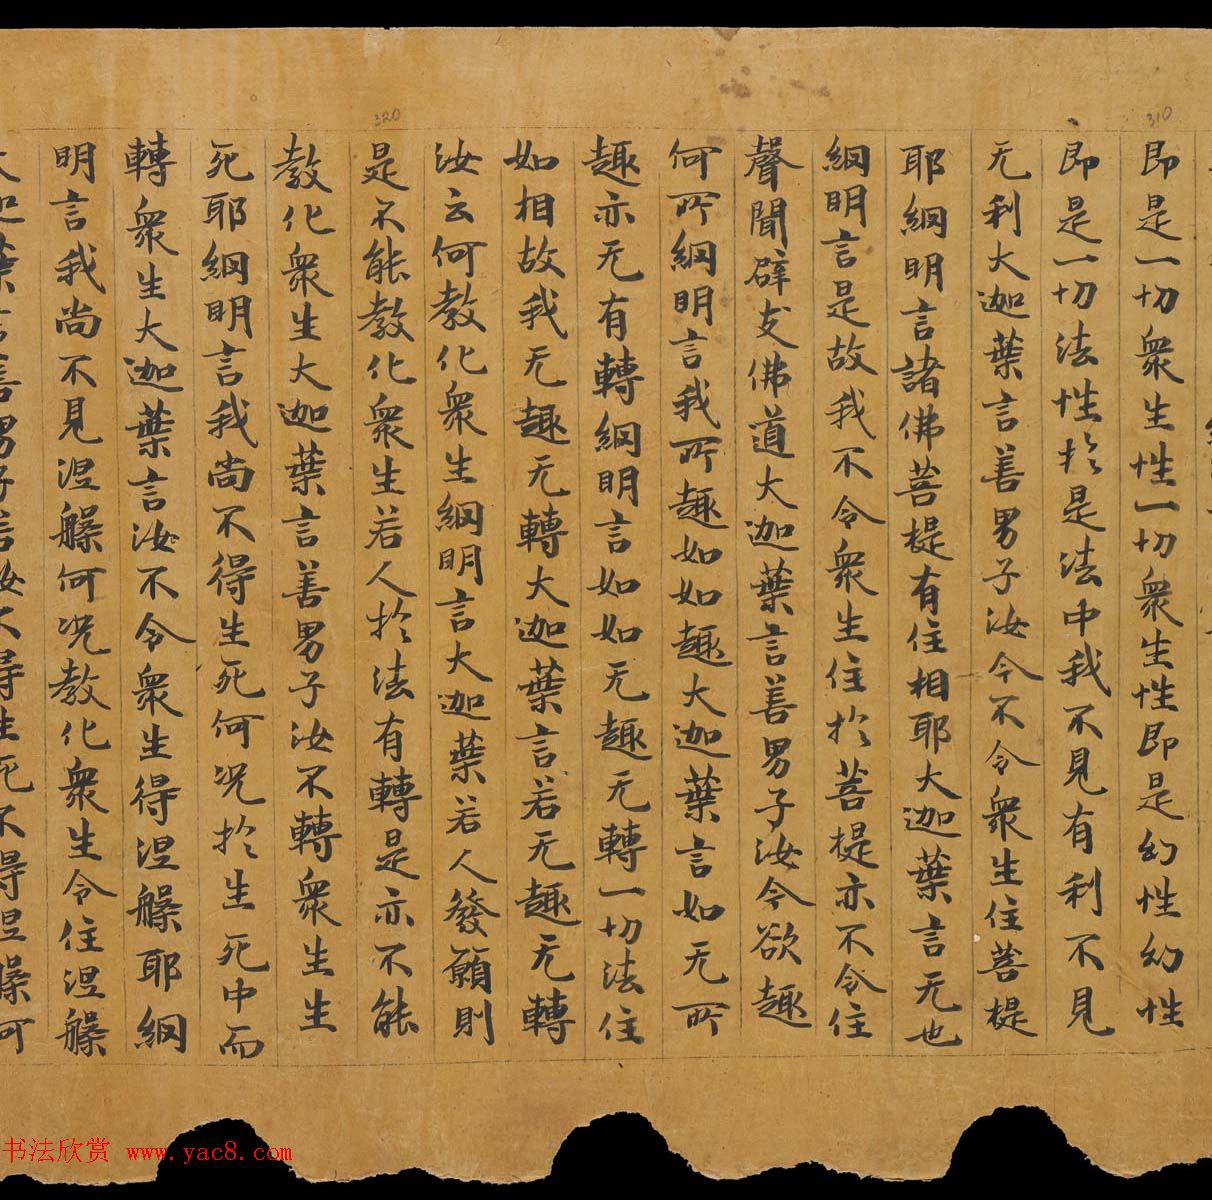 310
即是一切衆生性一切衆生性即是幻性幻性
即是一切法性扵是法中我不見有利不見
无利大迦葉言善男子汝今不令衆生住菩提
耶網明言諸佛菩提有住相耶大迦葉言无也
網明言是故我不令衆生住扵菩提亦不令住
聲聞辟支佛道大迦葉言善男子汝今欲趣
何所網明言我所趣如如趣大迦葉言如无所
趣亦无有轉網明言如如无趣无轉一切法住
如相故我无趣无轉大迦葉言若无趣无轉
汝云何教化衆生網明言大迦葉若人發願則
320
是不能教化衆生若人扵法有轉是亦不能
教化衆生大迦葉言善男子汝不轉衆生生
死耶網明言我尚不得生死何况扵生死中而
轉衆生大迦葉言汝不令衆生得涅槃耶網
明言我尚不見涅槃何况教化衆生令住涅槃
大迦葉言善男子若汝不得生死不得涅槃何
书法欣赏 www.yac8.com